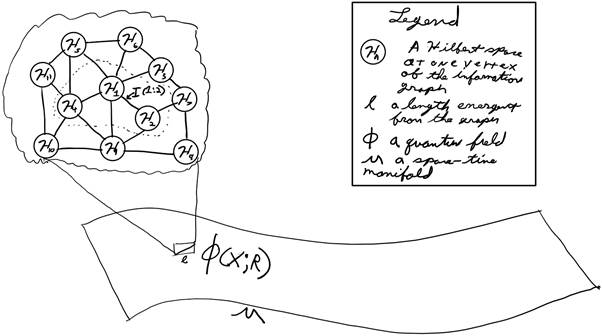 ℋ₅
ℋ₆
ℋ₁₁
ℋ₃
ℋ₁
I(1:2)
ℋ₄
ℋ₂
ℋ₁₀
ℋ₉
ℓ ϕ(X;R)
M
Legend
ℋₙ A Hilbert space
at one vertex
of the information
graph
ℓ a length emergent
from the graph
ϕ a quantum field
M a space-time
manifold